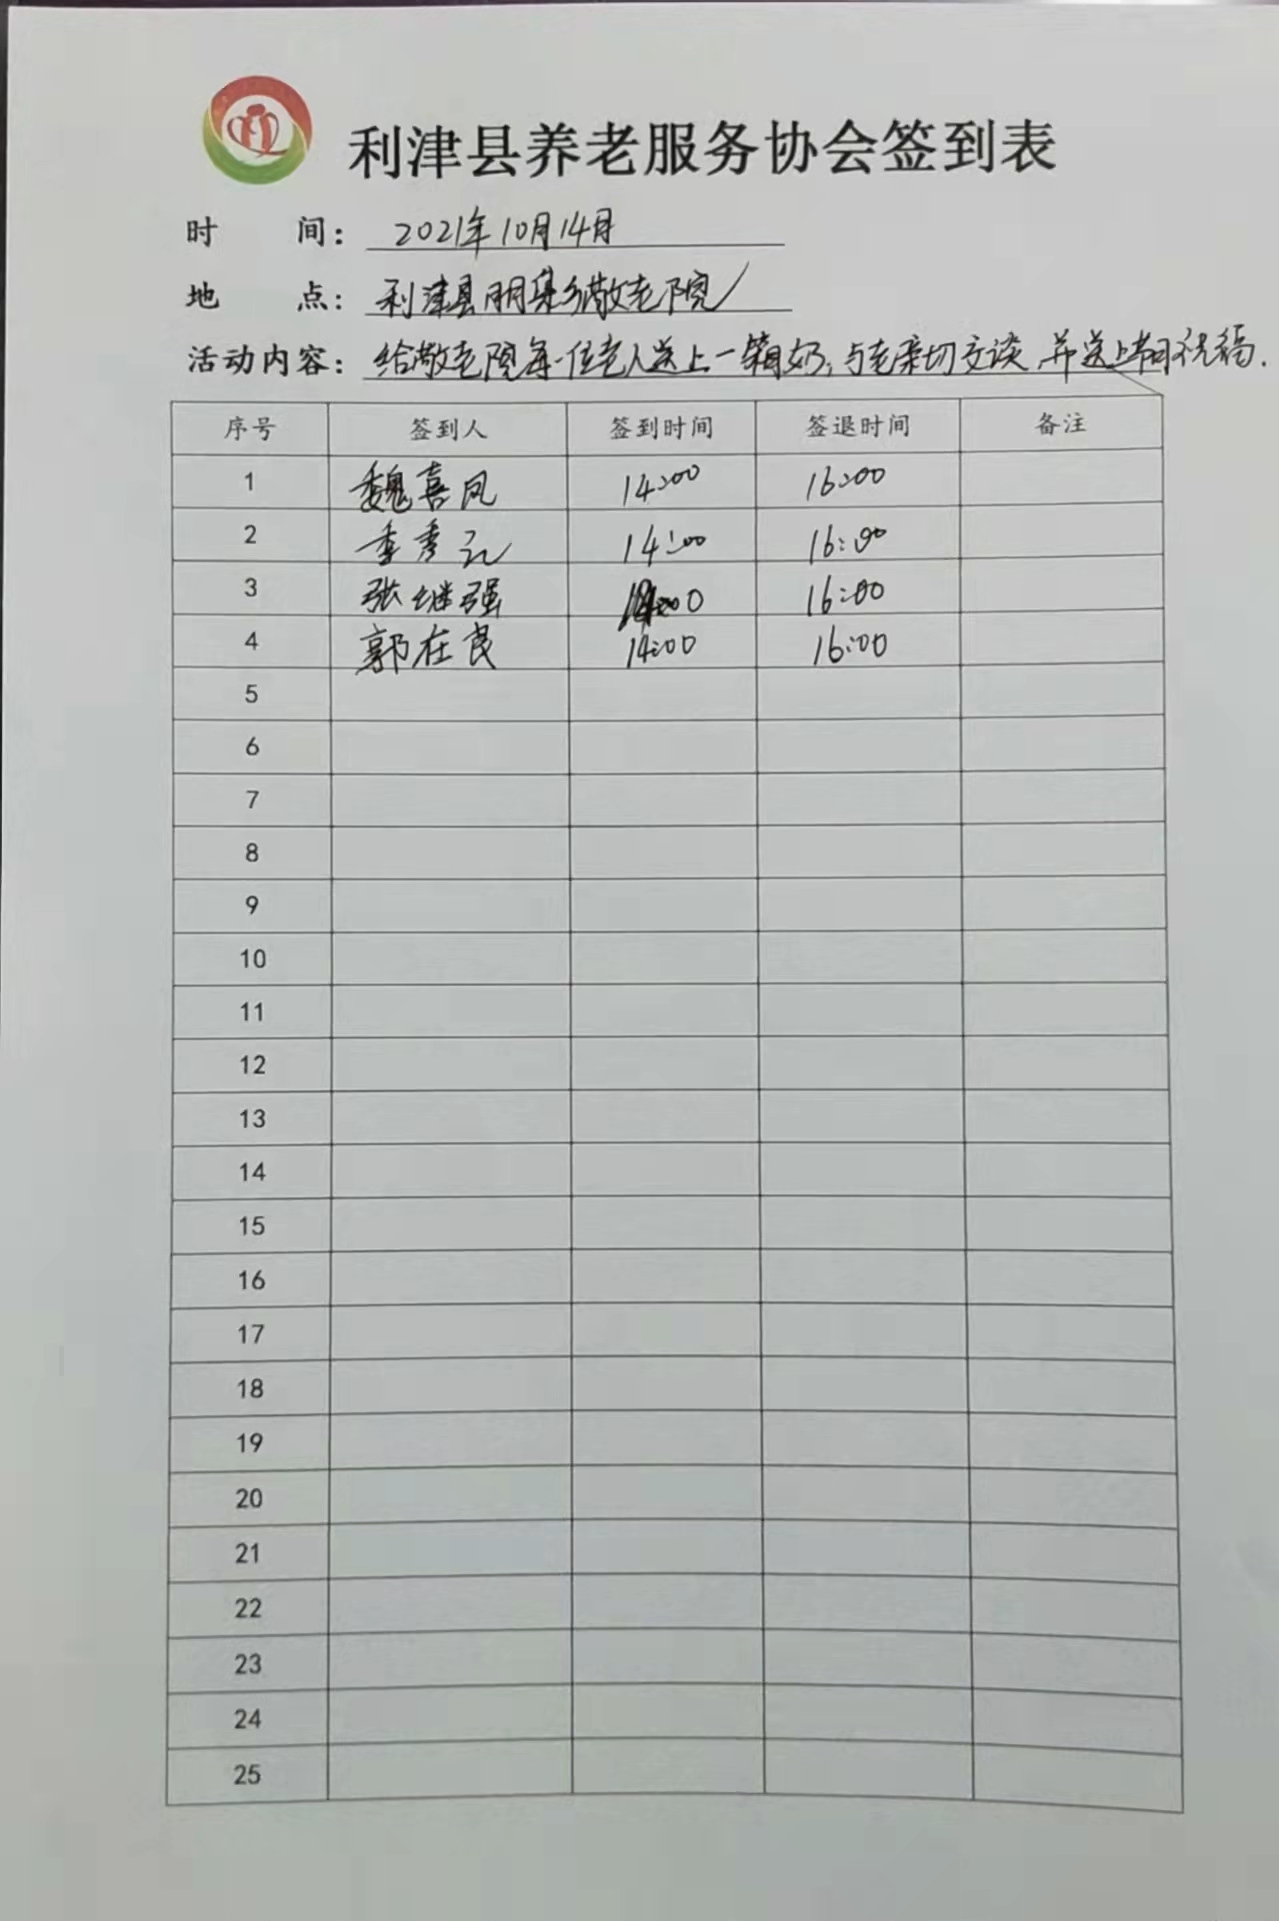 利津县养老服务协会签到表
时 间： 2021年10月14日
地 点： 利津县明集乡敬老院
活动内容： 给敬老院每一位老人送上一箱奶，与老亲切交谈 并送上节日祝福.
序号 签到人 签到时间 签退时间 备注
1 魏喜凤 14:00 16:00
2 季秀 14:00 16:00
3 张继强 14:00 16:00
4 郭在良 14:00 16:00
5
6
7
8
9
10
11
12
13
14
15
16
17
18
19
20
21
22
23
24
25